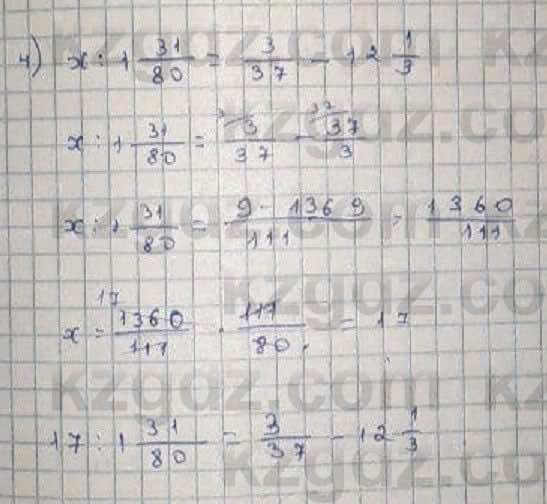 4) x : 1 31/80 = 3/37 - 12 1/3
x : 1 31/80 = 3/37 - 37/3
x : 1 31/80 = 9 - 1369/111 = 1360/111
x = 1360/111 · 111/80 = 17
17 : 1 31/80 = 3/37 - 12 1/3
kzgdz.com